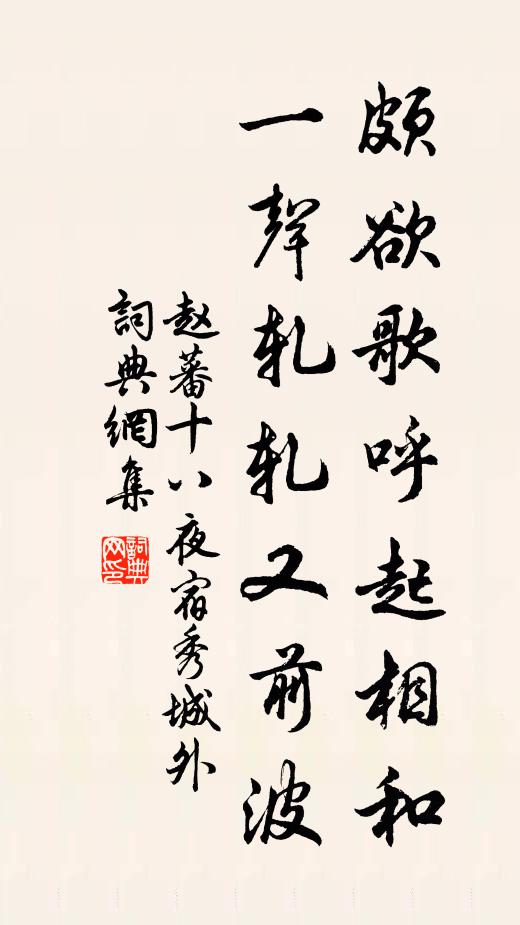 頗欲歌呼起相和
一聲軋軋又前波
赵蕃十八夜宿秀城外
詞典網集
詞典网印